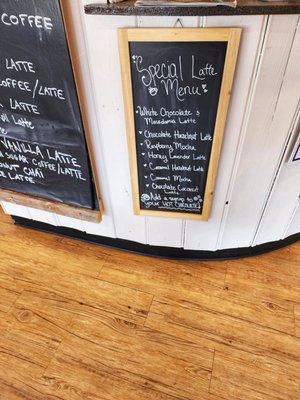 COFFEE
LATTE
COFFEE/LATTE
LATTE
LATTE
VANILLA LATTE
SUGAR COFFEE/LATTE
CHAI LATTE
LATTE
Special Latte
Menu
White Chocolate &
Macadamia Latte
Chocolate Hazelnut Latte
Raspberry Mocha
Honey Lavender Latte
Caramel Hazelnut Latte
Caramel Mocha
Chocolate Coconut
Latte
Add a syrup to
your HOT CHOCOLATE!